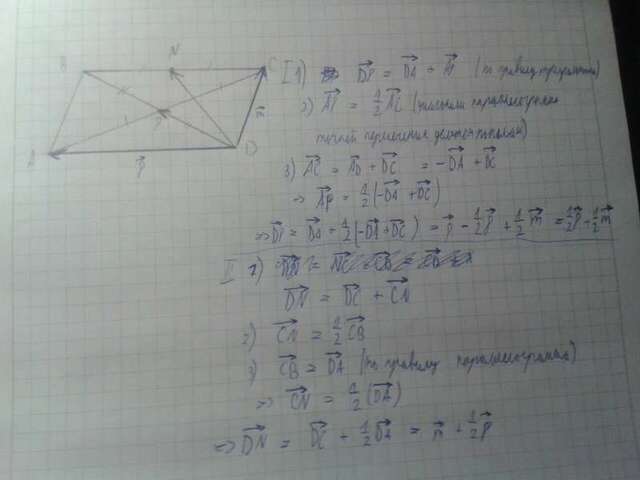 B N C
P
A D
p⃗
m⃗
I 1) DP⃗ = DA⃗ + AP⃗ (по правилу треугольника)
2) AP⃗ = 1/2 AC⃗ (диагонали параллелограмма
точкой пересечения делятся пополам)
3) AC⃗ = AD⃗ + DC⃗ = -DA⃗ + DC⃗
=> AP⃗ = 1/2(-DA⃗ + DC⃗)
=> DP⃗ = DA⃗ + 1/2(-DA⃗ + DC⃗) = p⃗ - 1/2p⃗ + 1/2m⃗ = 1/2p⃗ + 1/2m⃗
II 1)
DN⃗ = DC⃗ + CN⃗
2) CN⃗ = 1/2 CB⃗
3) CB⃗ = DA⃗ (по правилу параллелограмма)
=> CN⃗ = 1/2(DA⃗)
=> DN⃗ = DC⃗ + 1/2DA⃗ = m⃗ + 1/2p⃗